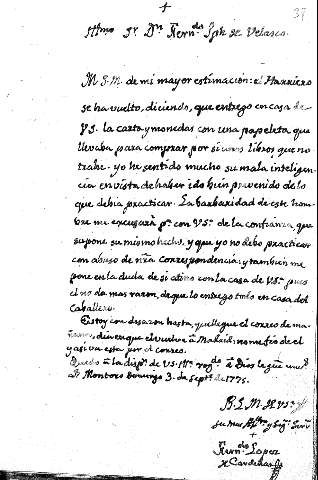 37
+
Illmo Sr. Dn. Fern.do Jph de Velasco.
M. S. M. de mi mayor estimacion: el Harriero
se ha vuelto, diciendo, que entrego en casa de
V.S. la carta y monedas con una papeleta que
llevaba para comprar por si unos libros que no
trahe. yo he sentido mucho su mala inteligen-
cia en vista de haber ido bien prevenido de lo
que debia practicar. La barbaridad de este hom-
bre me excusará p.a con VS.a de la confianza, que
supone su mismo hecho, y que yo no debo practicar
con abuso de nra. correspondencia: y tambien me
pone en la duda de si atino con la casa de VS.a pues
el no da mas razon, de que lo entrego todo en casa del
Caballero.
Estoy con desazon hasta, que llegue el correo de ma-
dien que el vuelve à Madrid: no me fio de el
y asi va esta por el correo.
Quedo à la disp.n de VS. Illma. rog.do à Dios le gue. m.s a.s
Montoro Domingo 3. de Sept.e de 1775.
B. L. M. de VS.a
su mas y Seg.o Serv.r
+
Fern.do Lopez
de Cardenas